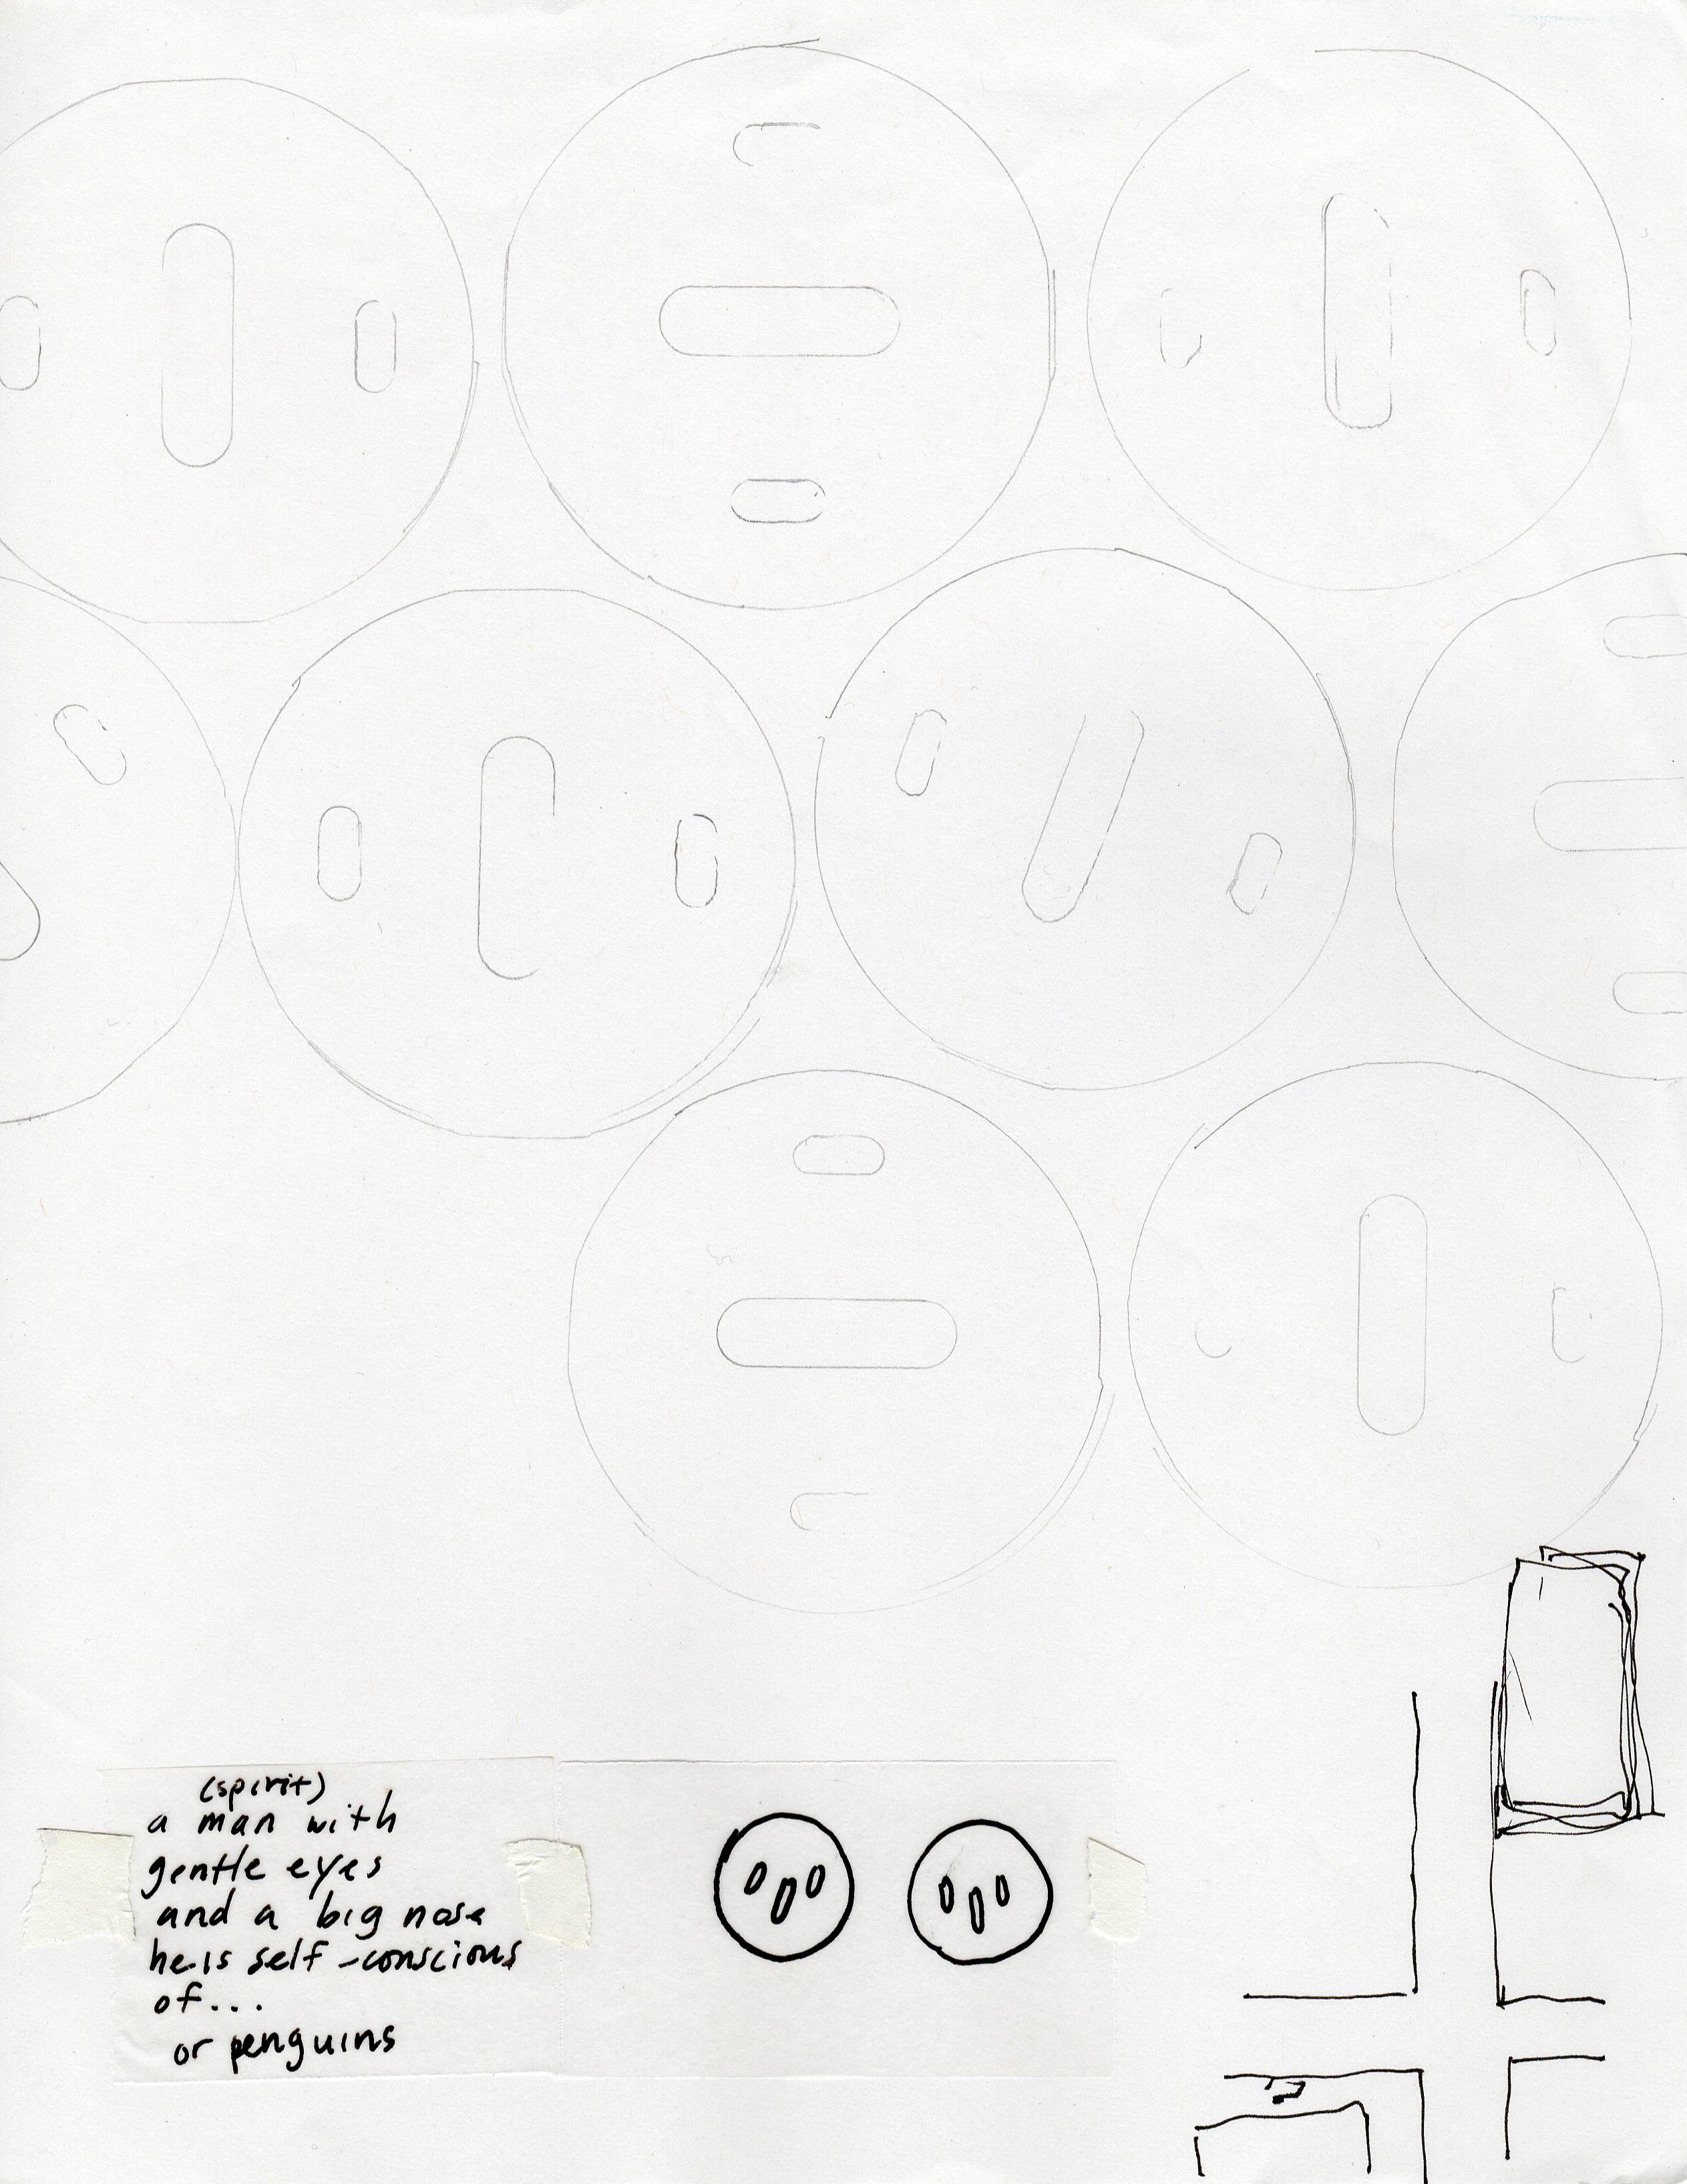 (spirit)
a man with
gentle eyes
and a big nose
he is self-conscious
of...
or penguins